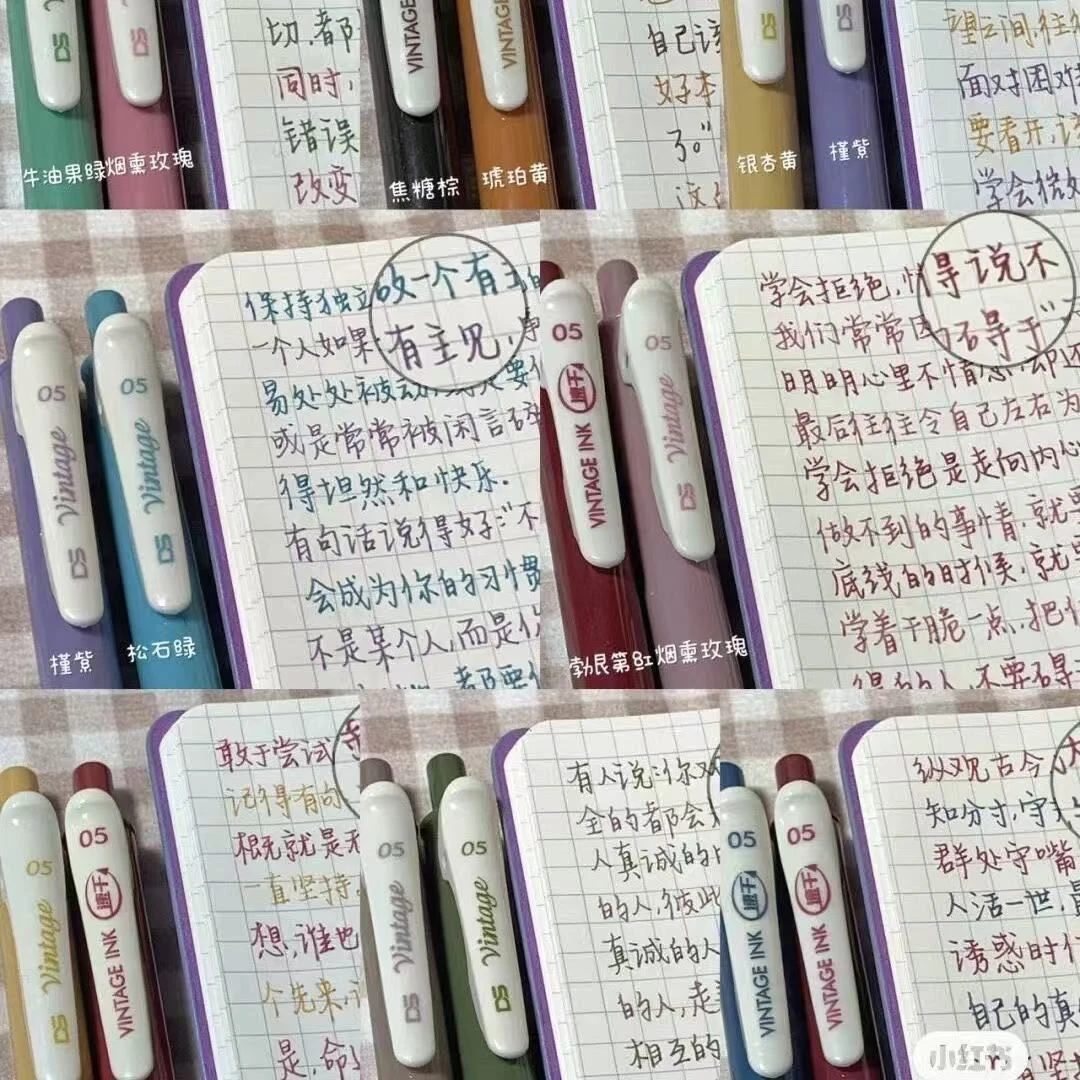 DS
DS
切,都
同时,
错误
改变
牛油果绿
烟熏玫瑰
VINTAGE
VINTAGE
自己该
好本
了。”
这
焦糖棕
琥珀黄
DS
DS
望之间,往往
面对困难
要看开,该
学会微
银杏黄
槿紫
05
Vintage
DS
05
Vintage
DS
保持独立
一个人如果
易处处被动,
或是常常被闲言碎
得坦然和快乐.
有句话说得好:“不
会成为你的习惯
不是某个人,而是你
都要
个有主
有主见
槿紫
松石绿
05
速干
VINTAGE INK
05
Vintage
DS
学会拒绝,
我们常常因
明明心里不情愿,却还
最后往往令自己左右为
学会拒绝是走向内心
做不到的事情,就要
底线的时候,就
学着干脆一点,把
的人,不要碍于
得说不
碍于”
勃艮第红
烟熏玫瑰
05
Vintage
DS
05
速干
VINTAGE INK
敢于尝试
记得有句
概就是无
一直坚持,
想,谁也
个先来,
是,命
05
Vintage
DS
05
Vintage
DS
有人说:“你对
全的都会
人真诚的
的人,彼此
真诚的人
的人,走
相互的
05
速干
VINTAGE INK
05
速干
VINTAGE INK
纵观古今
知分寸,守
群处守嘴
人活一世,最
诱惑时
自己的真
有坚持
小红书